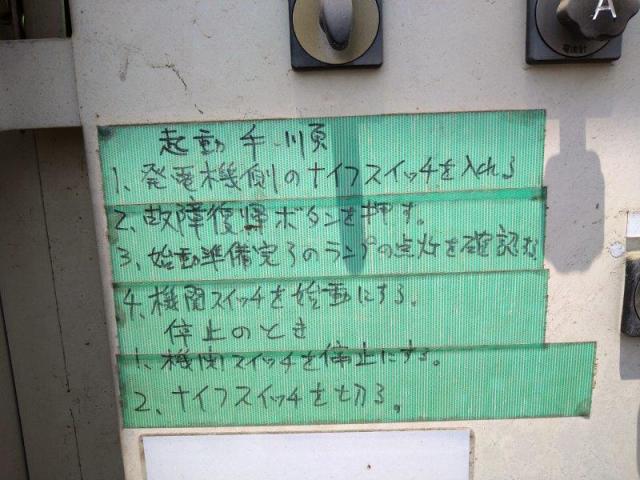 A
電流計
起動手順
1、発電機側のナイフスイッチを入れる
2、故障復帰ボタンを押す。
3、始動準備完了のランプの点灯を確認す
4、機関スイッチを始動にする。
停止のとき
1、機関スイッチを停止にする。
2、ナイフスイッチを切る。